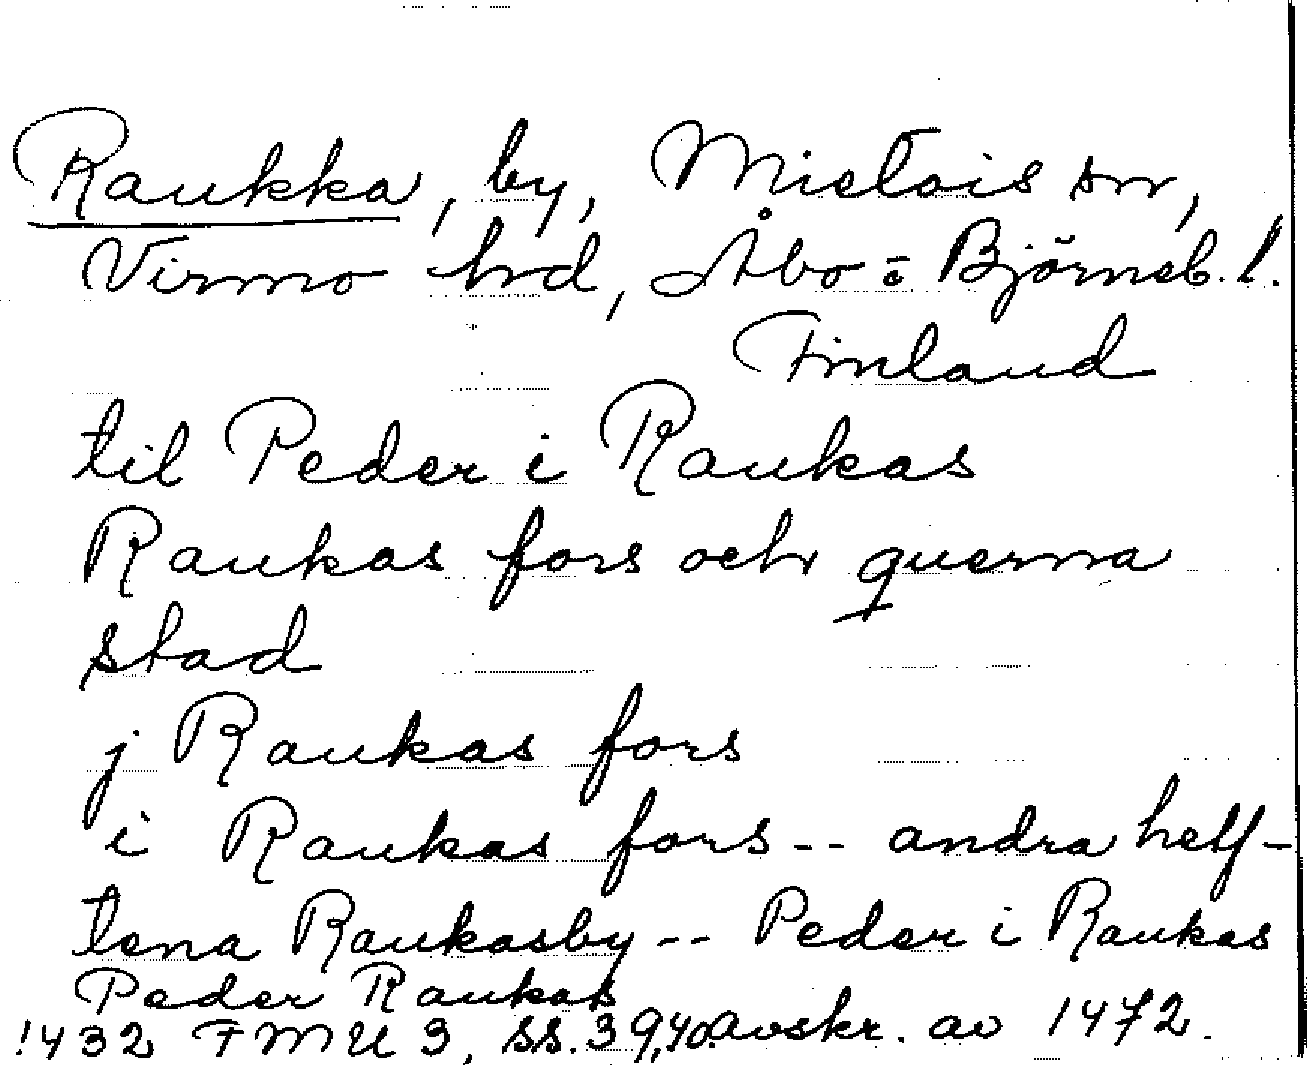 Raukka, by, Mietois sn,
Virmo hrd, Åbo o Björneb. l.
Finland
til Peder i Raukas
Raukas fors och querna
stad
j Raukas fors
i Raukas fors -- andra helf-
tena Raukasby -- Peder i Raukas
Peder Raukas
1432 FMU 3, ss. 39,40. avskr. av 1472.